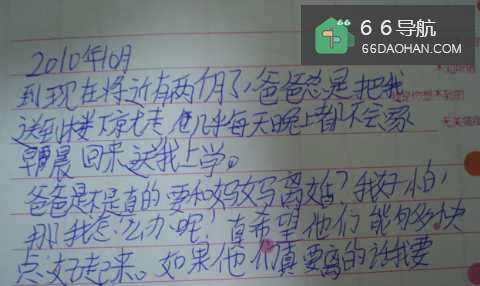 66导航
66DAOHAN.COM
2010年10月
到现在将近有两个月了，爸爸总是把我
送到楼下就走 他几乎每天晚上都不会家
早晨 回来送我上学。
爸爸是不是真的要和妈妈离婚？我好怕，
那我怎么办呢！真希望他们能够快
点好起来。如果他们真要离的话我要